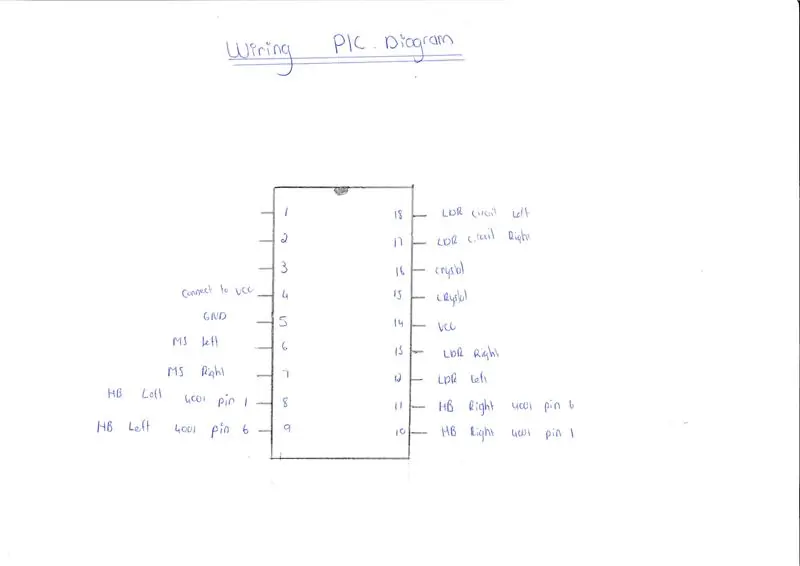 Wiring PIC. Diagram
1 18 LDR circuit Left
2 17 LDR circuit Right
3 16 Crystal
Connect to VCC 4 15 CRystal
GND 5 14 VCC
MS Left 6 13 LDR Right
MS Right 7 12 LDR Left
HB Left 4001 pin 1 8 11 HB Right 4001 pin 6
HB Left 4001 pin 6 9 10 HB Right 4001 pin 1